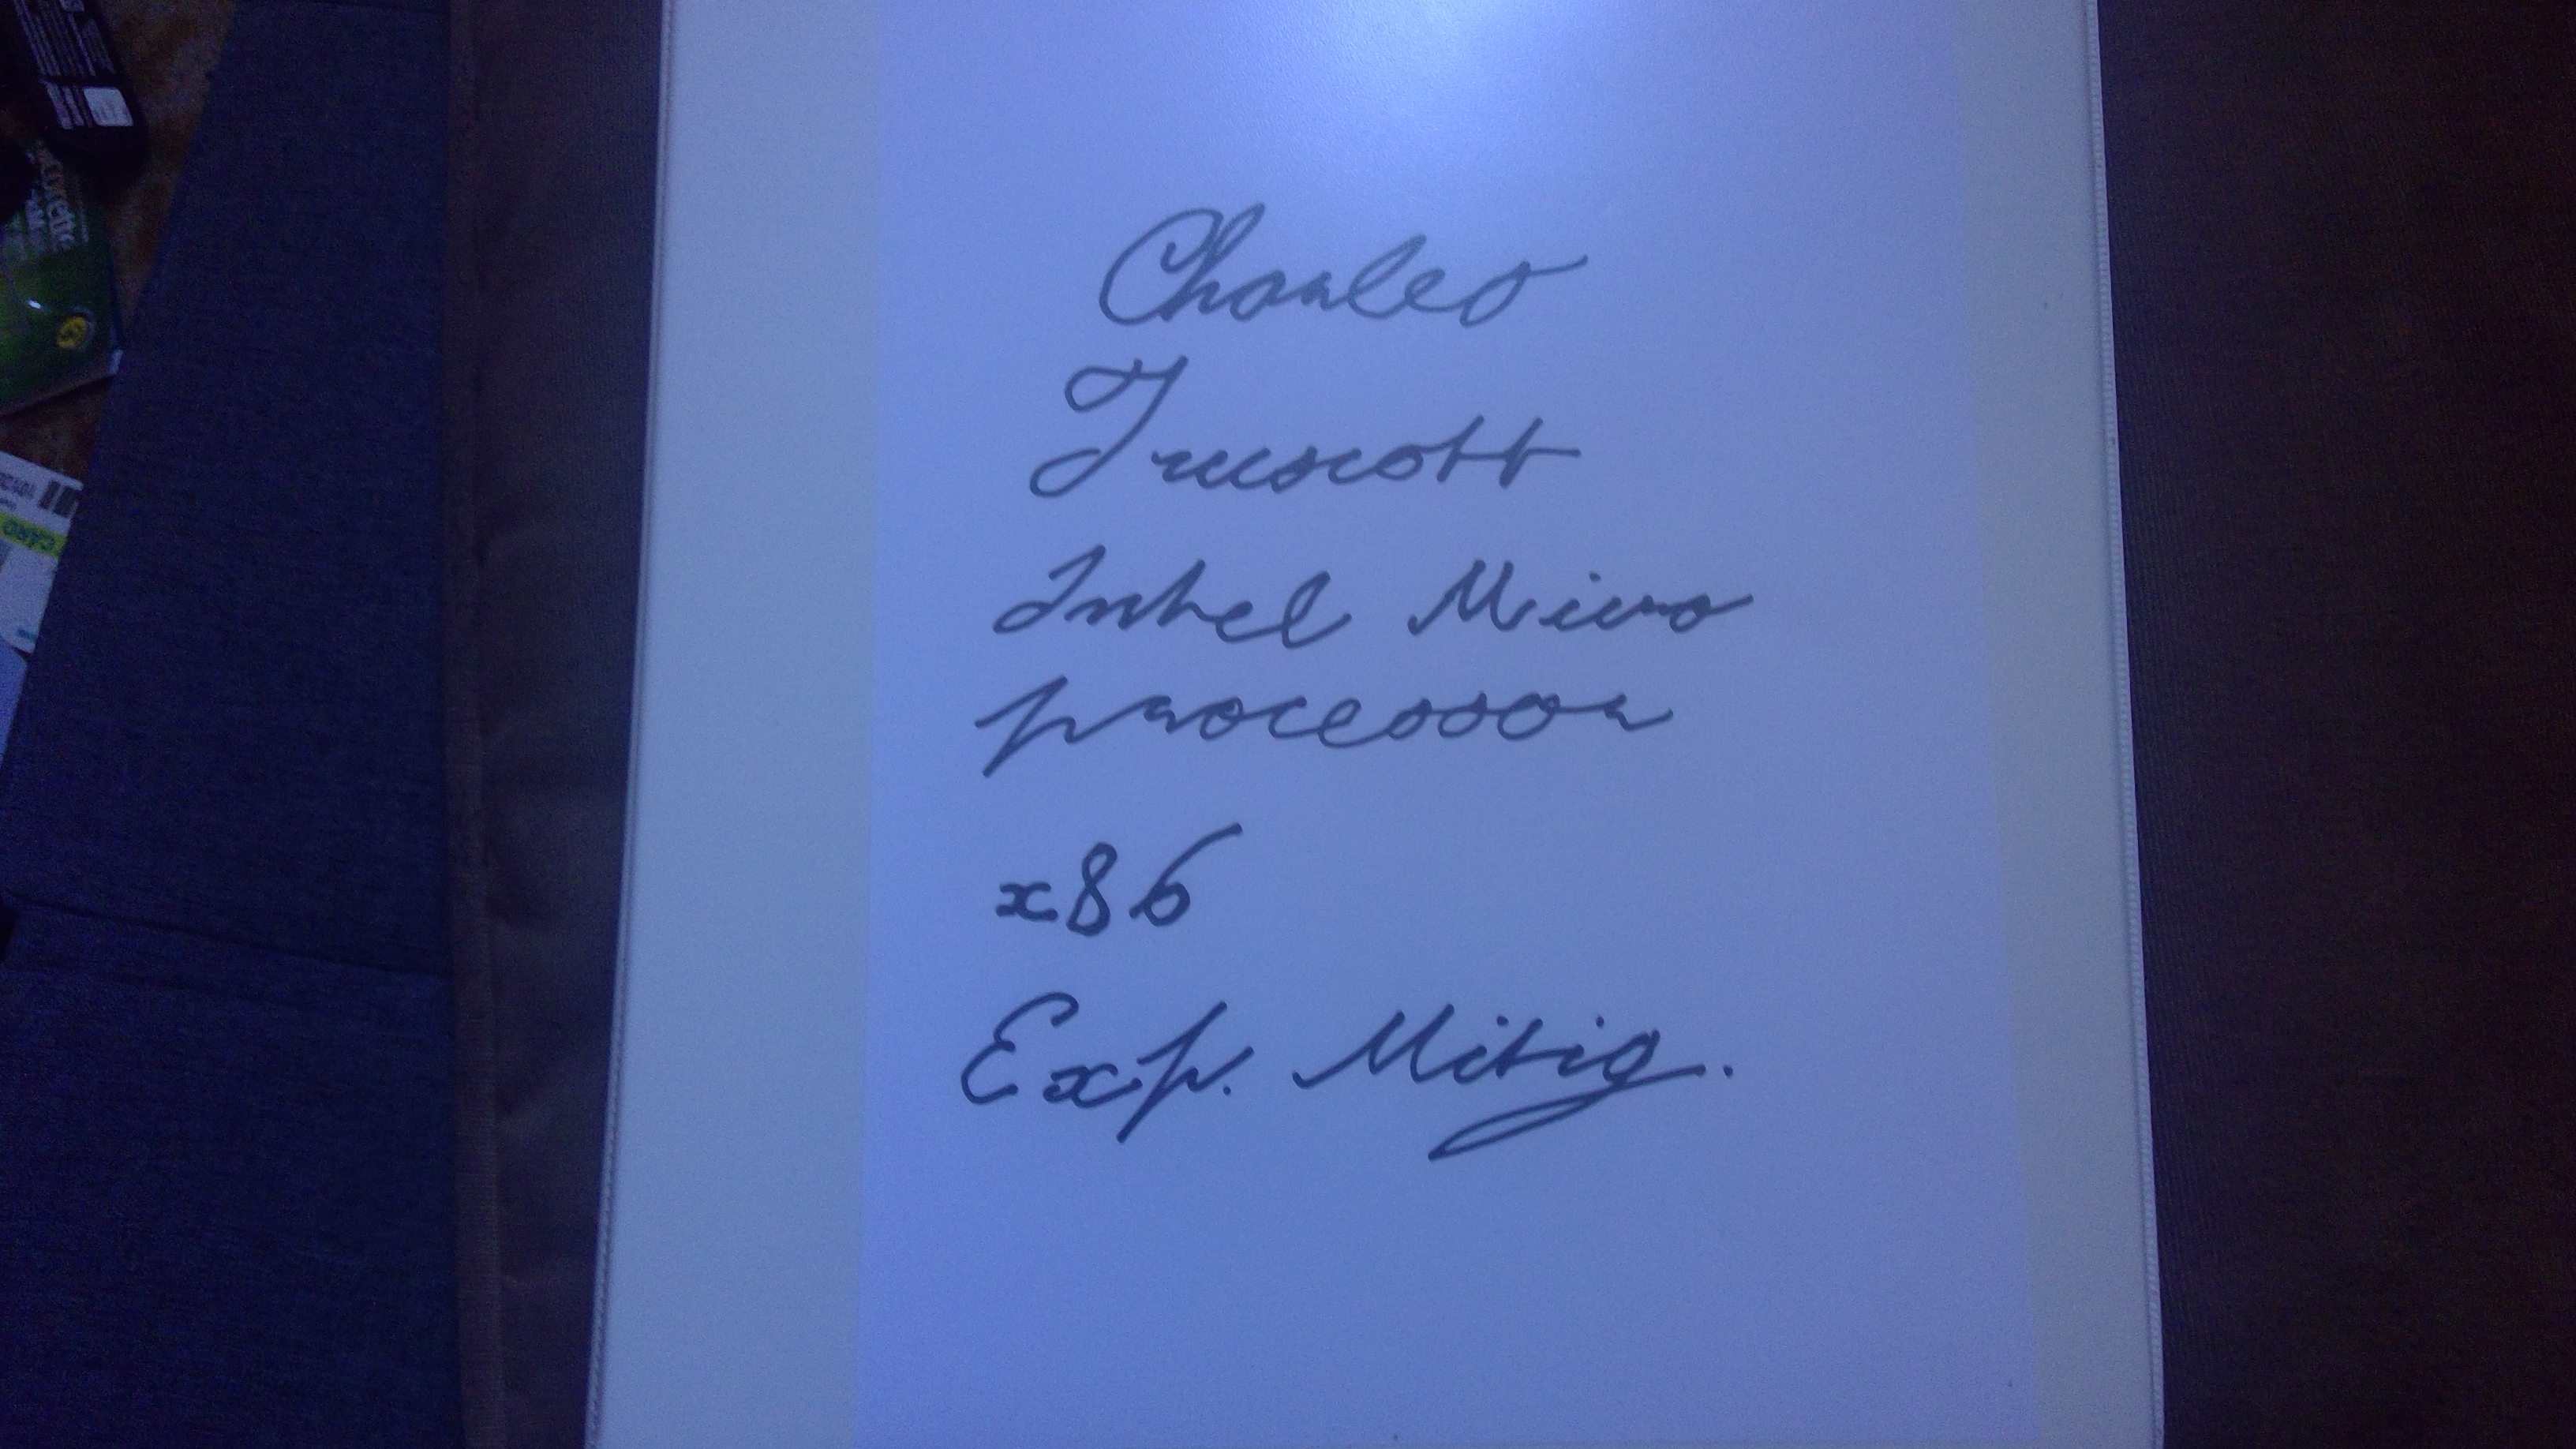 Charles
Truscott
Intel Micro
processor
x86
Exp. Mitig.
CARD